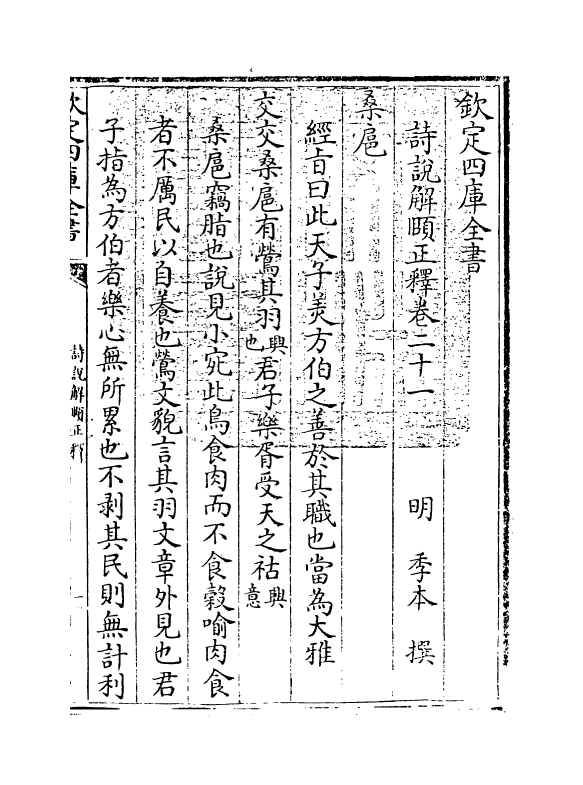 欽定四庫全書
詩說解頤正釋卷二十一　明　季本　撰
桑扈
經旨曰此天子美方伯之善於其職也當為大雅
交交桑扈有鶯其羽興也君子樂胥受天之祜興意
桑扈竊脂也說見小宛此鳥食肉而不食穀喻肉食
者不厲民以自養也鶯文貌言其羽文章外見也君
子指為方伯者樂心無所累也不剥其民則無計利
欽定四庫全書
詩說解頤正釋
一